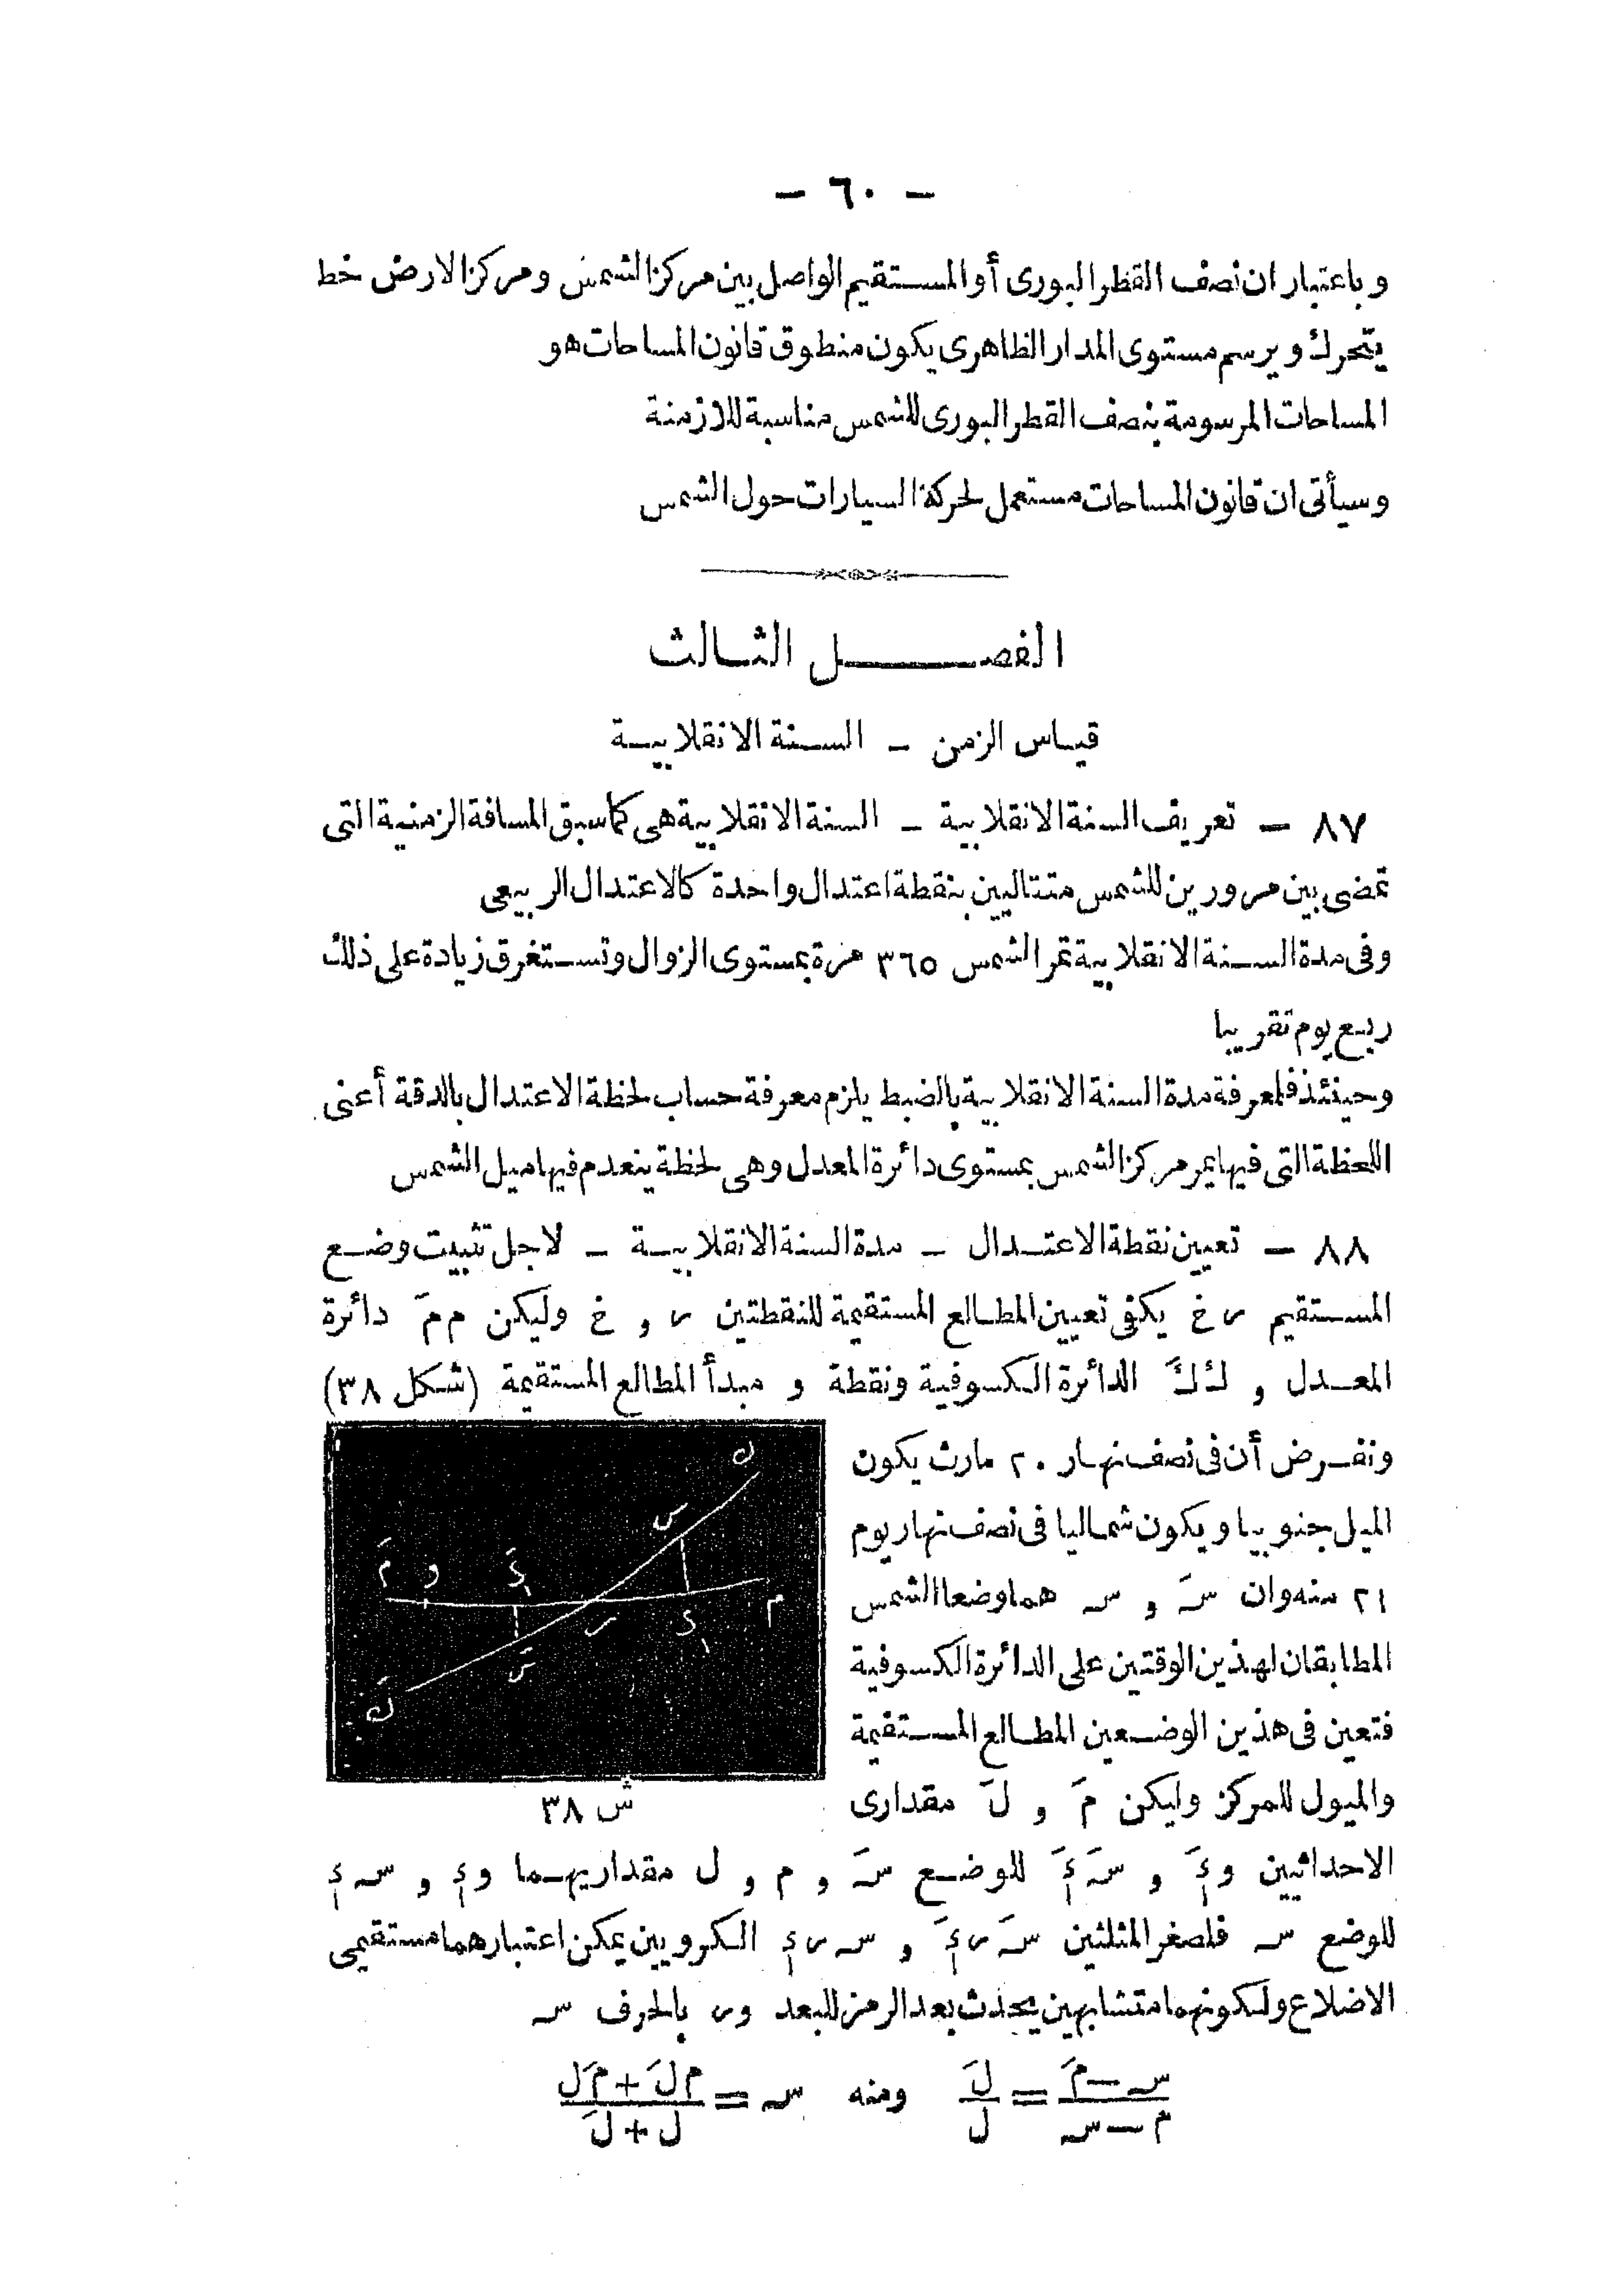 — ٦٠ —
وباعتبار ان نصف القطر البورى أو المستقيم الواصل بين مركز الشمس ومركز الارض خط
يتحرك ويرسم مستوى المدار الظاهرى يكون منطوق قانون المساحات هو
المساحات المرسومة بنصف القطر البورى للشمس مناسبة للازمنة
وسيأتى ان قانون المساحات مستعمل لحركة السيارات حول الشمس
الفصل الثالث
قياس الزمن — السنة الانقلابية
٨٧ — تعريف السنة الانقلابية — السنة الانقلابية هى كما سبق المسافة الزمنية التى
تمضى بين مرورين للشمس متتاليين بنقطة اعتدال واحدة كالاعتدال الربيعى
وفى مدة السنة الانقلابية تمر الشمس ٣٦٥ مرة بمستوى الزوال وتستغرق زيادة على ذلك
ربع يوم تقريبا
وحينئذ فلمعرفة مدة السنة الانقلابية بالضبط يلزم معرفة حساب لحظة الاعتدال بالدقة أعنى
اللحظة التى فيها يمر مركز الشمس بمستوى دائرة المعدل وهى لحظة ينعدم فيها ميل الشمس
٨٨ — تعيين نقطة الاعتدال — مدة السنة الانقلابية — لاجل تثبيت وضع
المستقيم ر خ يكفى تعيين المطالع المستقيمة للنقطتين ر و خ وليكن م مَ دائرة
المعدل و ك كَ الدائرة الكسوفية ونقطة و مبدأ المطالع المستقيمة (شكل ٣٨)
ونفرض أن فى نصف نهار ٢٠ مارث يكون
الميل جنوبيا ويكون شماليا فى نصف نهار يوم
٢١ منه وان سَ و س هما وضعا الشمس
المطابقان لهذين الوقتين على الدائرة الكسوفية
فتعين فى هذين الوضعين المطالع المستقيمة
والميول للمركز وليكن مَ و لَ مقدارى
ك س مَ و ءَ١ م ء١ ر سَ كَ
ش ٣٨
الاحداثيين و ءَ١ و سَ ءَ١ للوضع سَ و م و ل مقداريهما و ء١ و س ء١
للوضع س فلصغر المثلثين سَ ر ءَ١ و س ر ء١ الكرويين يمكن اعتبارهما مستقيمى
الاضلاع ولكونهما متشابهين يحدث بعد الرمز للبعد و ر بالحرف س
(س — مَ)/(م — س) = لَ/ل ومنه س = (م لَ + مَ ل)/(ل + لَ)